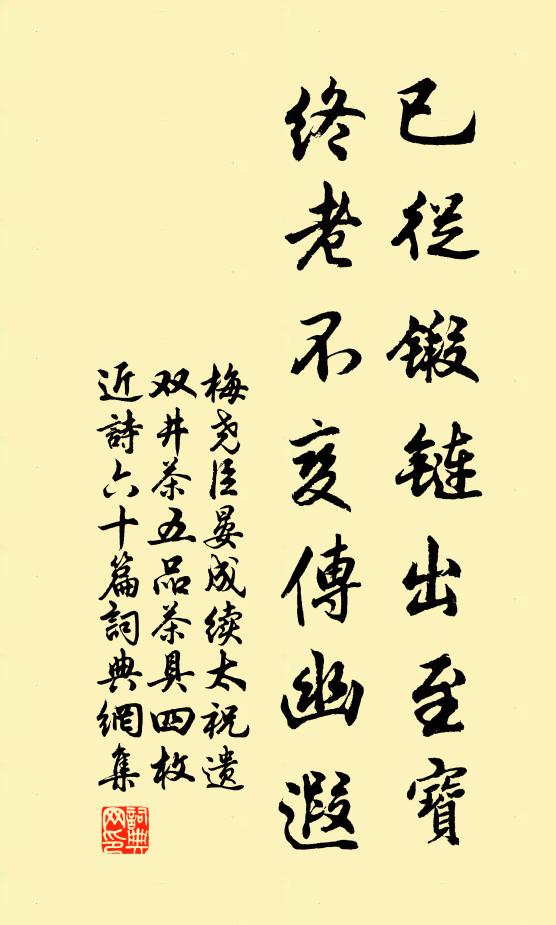 已從鍛鏈出至寶
終老不变傳幽遐
梅尧臣晏成续太祝遗
双井茶五品茶具四枚
近詩六十篇詞典網集
詞典
网印